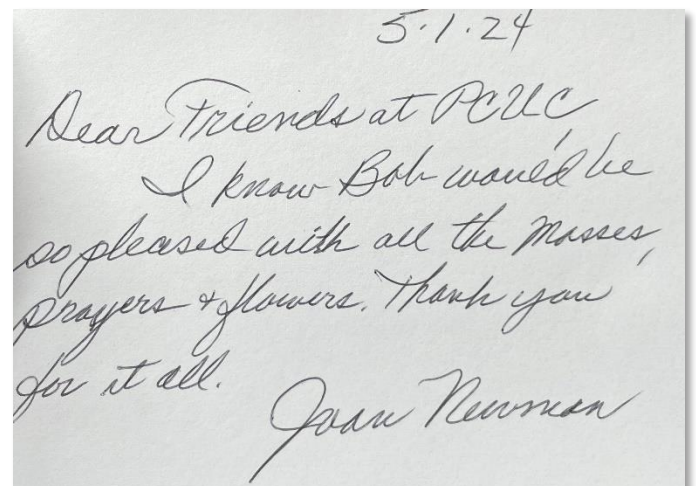 5.1.24
Dear Friends at PCUC,
I know Bob would be
so pleased with all the Masses,
prayers + flowers. Thank you
for it all.
Joan Newman